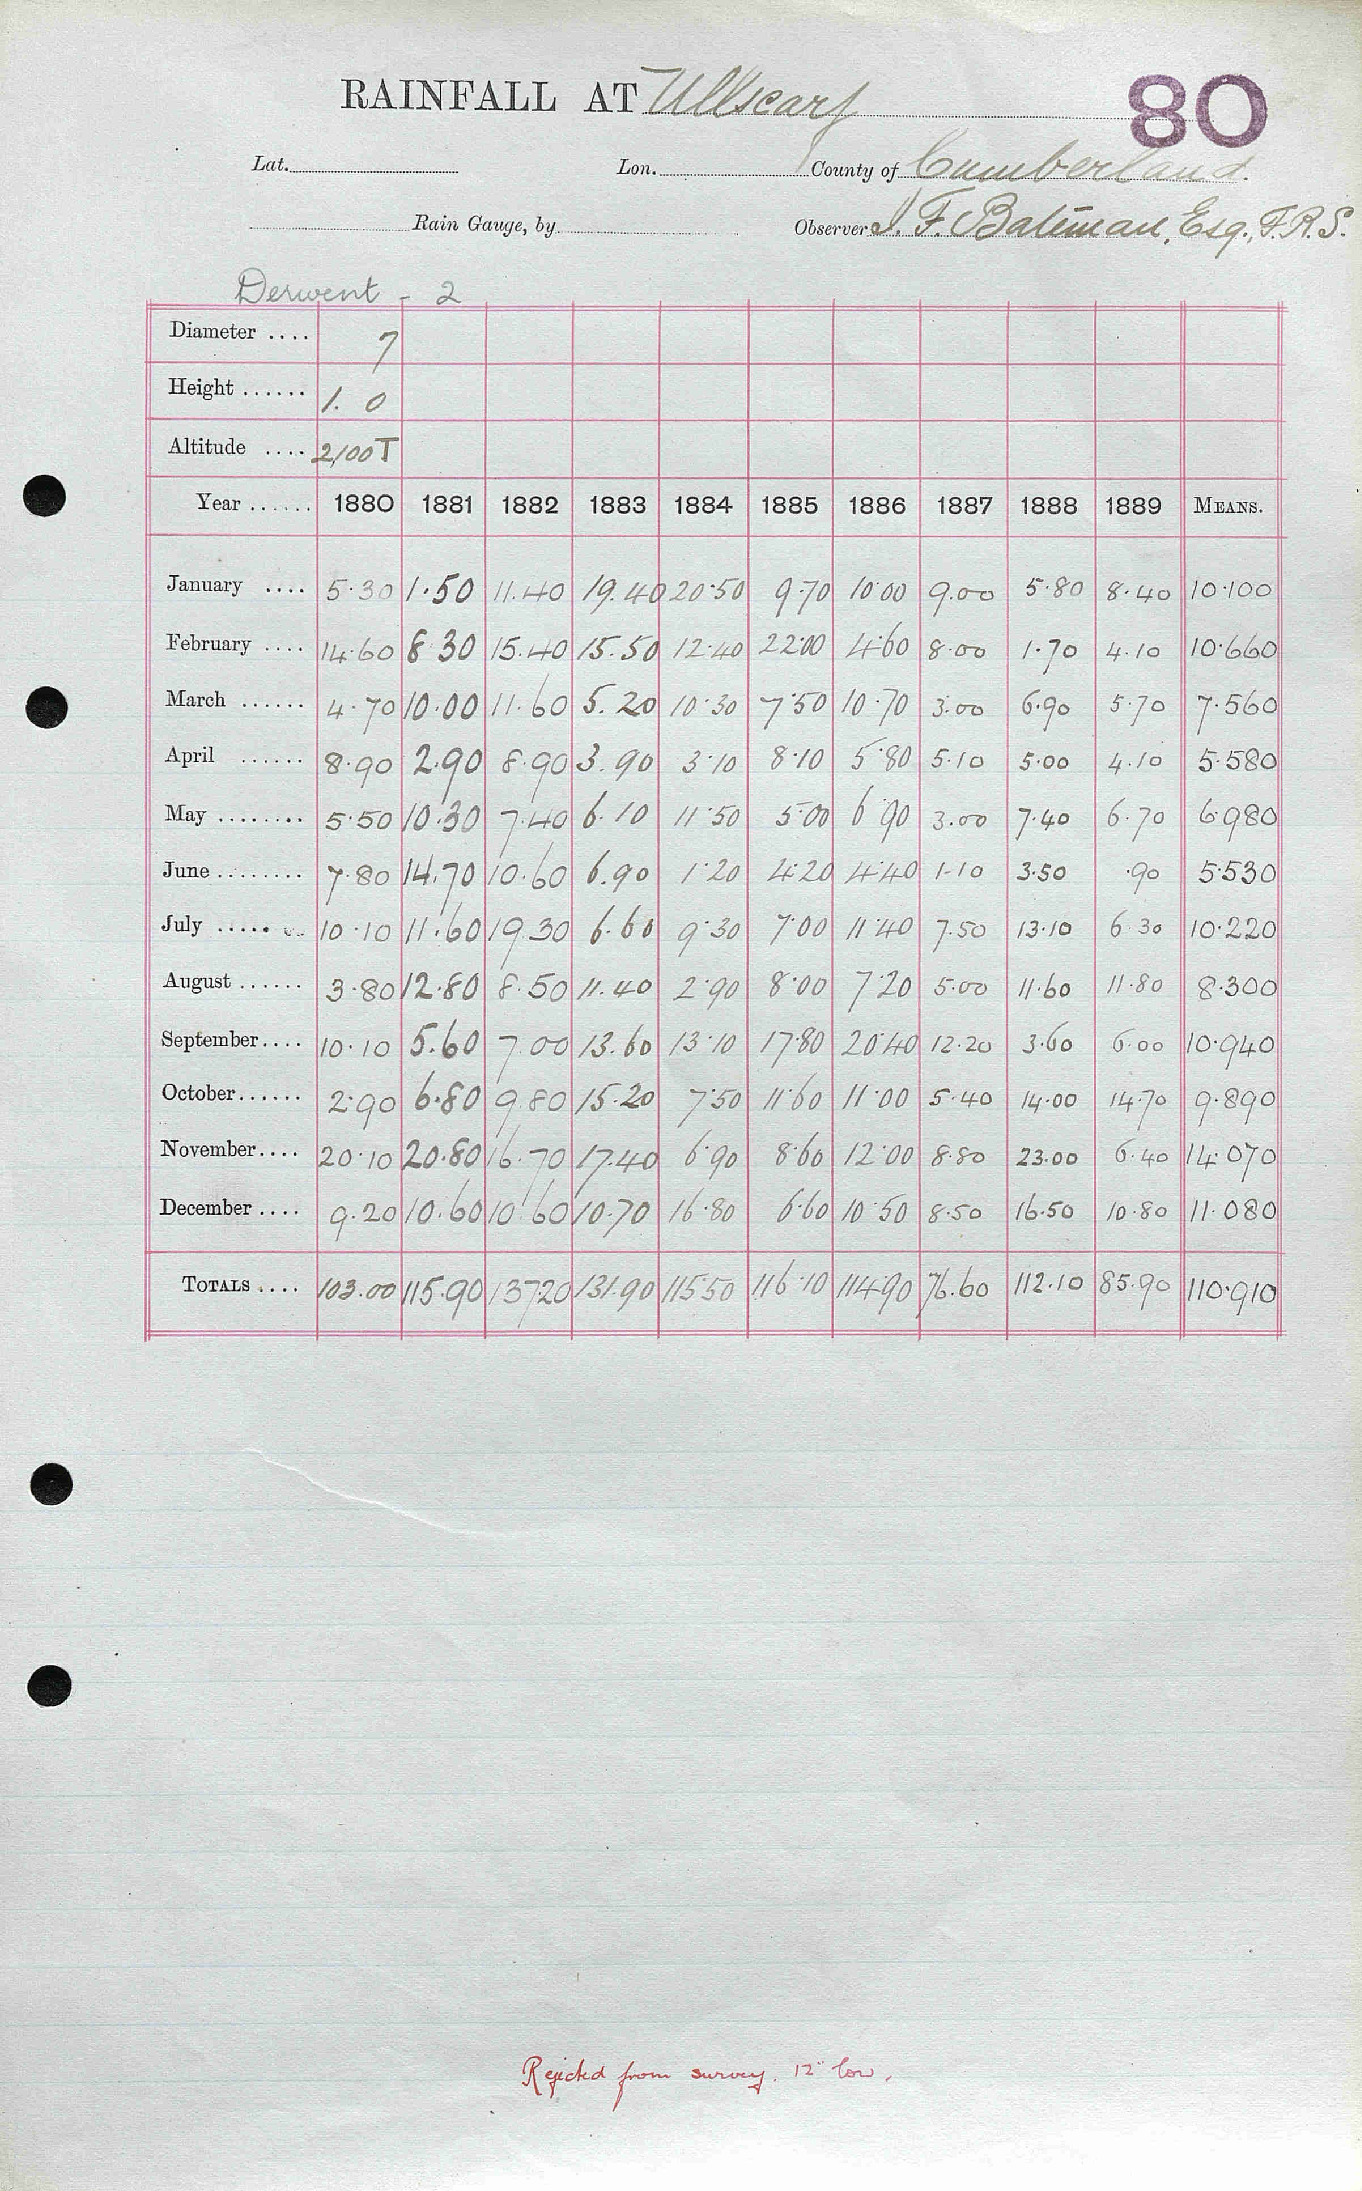 RAINFALL AT Ullscarf 80
Lat. Lon. County of Cumberland.
Rain Gauge, by Observer J. F. Bateman, Esq., F.R.S.
Derwent - 2
Diameter .... 7
Height ...... 1. 0
Altitude .... 2100 T
Year ...... 1880 1881 1882 1883 1884 1885 1886 1887 1888 1889 MEANS.
January .... 5.30 1.50 11.40 19.40 20.50 9.70 10.00 9.00 5.80 8.40 10.100
February .... 14.60 8.30 15.40 15.50 12.40 22.00 4.60 8.00 1.70 4.10 10.660
March ...... 4.70 10.00 11.60 5.20 10.30 7.50 10.70 3.00 6.90 5.70 7.560
April ...... 8.90 2.90 8.90 3.90 3.10 8.10 5.80 5.10 5.00 4.10 5.580
May ........ 5.50 10.30 7.40 6.10 11.50 5.00 6.90 3.00 7.40 6.70 6.980
June ........ 7.80 14.70 10.60 6.90 1.20 4.20 4.40 1.10 3.50 .90 5.530
July ..... 10.10 11.60 19.30 6.60 9.30 7.00 11.40 7.50 13.10 6.30 10.220
August ...... 3.80 12.80 8.50 11.40 2.90 8.00 7.20 5.00 11.60 11.80 8.300
September .... 10.10 5.60 7.00 13.60 13.10 17.80 20.40 12.20 3.60 6.00 10.940
October ...... 2.90 6.80 9.80 15.20 7.50 11.60 11.00 5.40 14.00 14.70 9.890
November .... 20.10 20.80 16.70 17.40 6.90 8.60 12.00 8.80 23.00 6.40 14.070
December .... 9.20 10.60 10.60 10.70 16.80 6.60 10.50 8.50 16.50 10.80 11.080
TOTALS .... 103.00 115.90 137.20 131.90 115.50 116.10 114.90 76.60 112.10 85.90 110.910
Rejected from survey. 12" low.